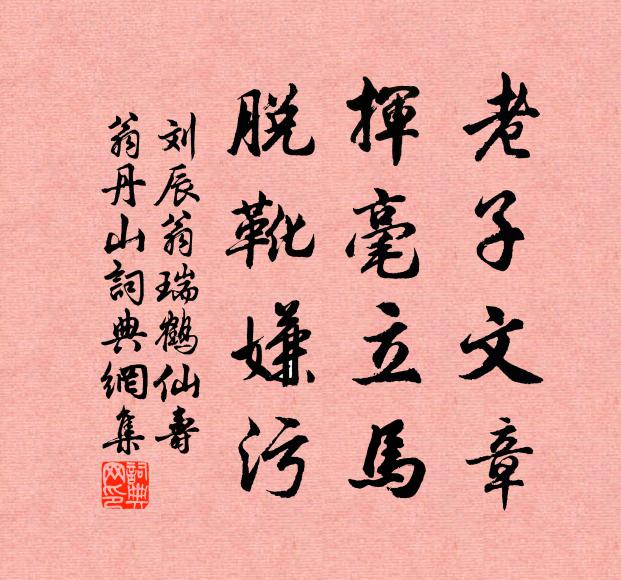 老子文章
揮毫立馬
脱靴嫌污
刘辰翁瑞鶴仙壽
翁丹山詞典網集
詞典网印